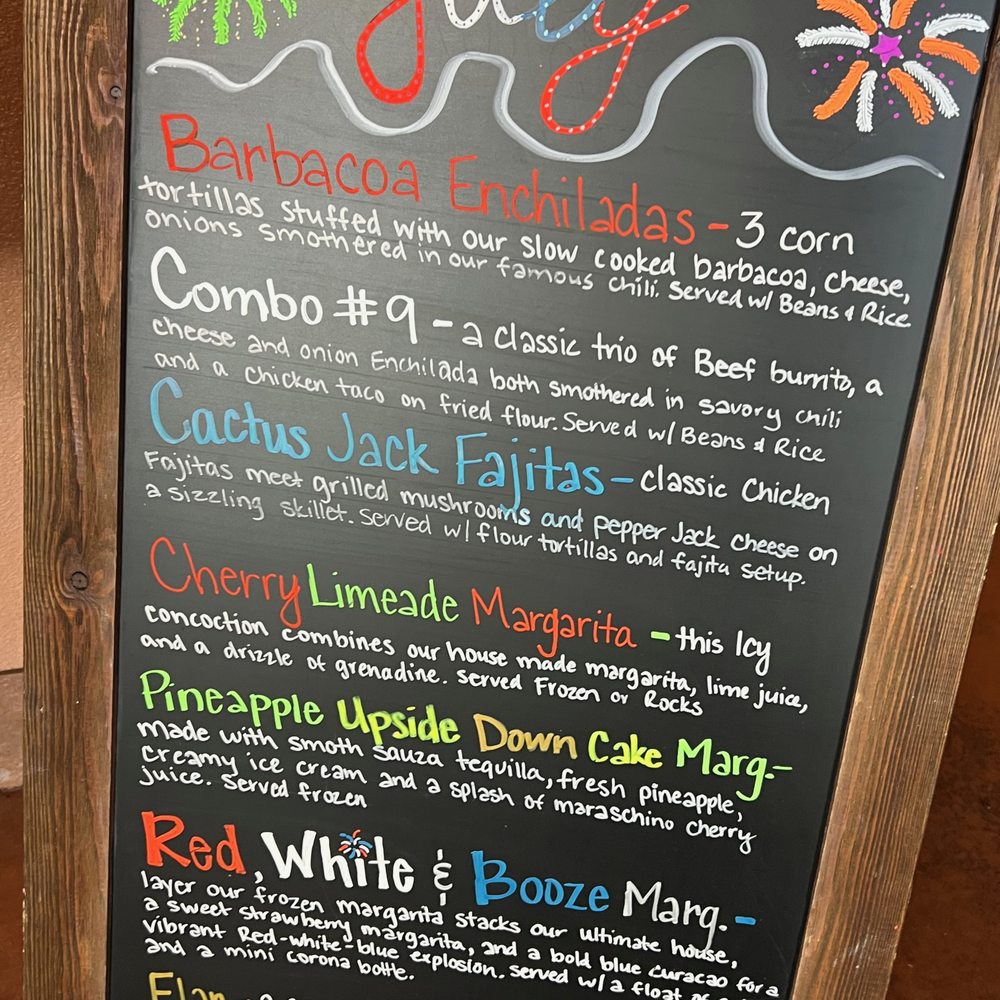 July
Barbacoa Enchiladas - 3 corn
tortillas stuffed with our slow cooked barbacoa, cheese,
onions smothered in our famous chili. Served w/ Beans & Rice
Combo #9 - a classic trio of Beef burrito, a
cheese and onion Enchilada both smothered in savory chili
and a chicken taco on fried flour. Served w/ Beans & Rice
Cactus Jack Fajitas - classic Chicken
Fajitas meet grilled mushrooms and pepper Jack cheese on
a sizzling skillet. Served w/ flour tortillas and fajita setup.
Cherry Limeade Margarita - this Icy
concoction combines our house made margarita, lime juice,
and a drizzle of grenadine. Served Frozen or Rocks
Pineapple Upside Down Cake Marg. -
made with smoth Sauza tequilla, fresh pineapple,
creamy ice cream and a splash of maraschino cherry
juice. Served frozen
Red, White & Booze Marg. -
layer our frozen margarita stacks our ultimate house,
a sweet strawberry margarita, and a bold blue curacao for a
vibrant Red-white-blue explosion. Served w/ a float of
and a mini corona bottle.
Flan